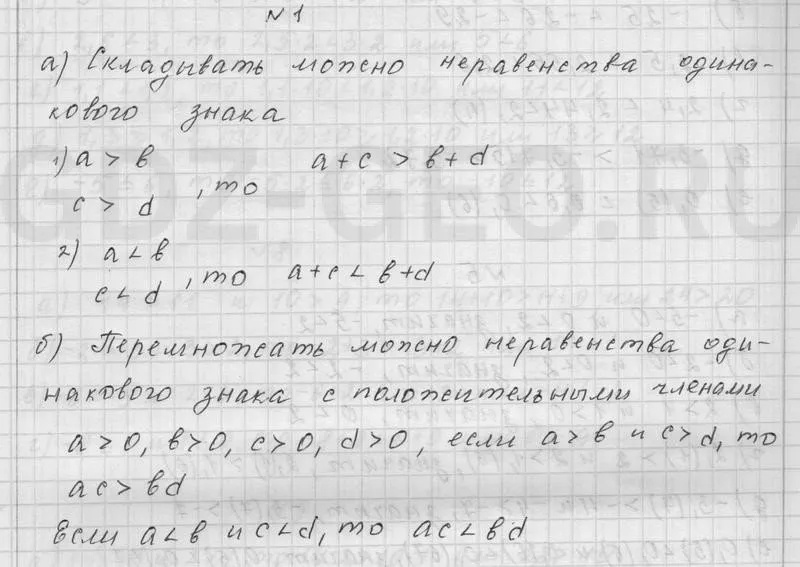 № 1
а) Складывать можно неравенства одина-
кового знака
1) a > b
c > d , то a + c > b + d
2) a < b
c < d , то a + c < b + d
б) Перемножать можно неравенства оди-
накового знака с положительными членами
a > 0, b > 0, c > 0, d > 0, если a > b и c > d, то
ac > bd
Если a < b и c < d, то ac < bd
GDZ-GEO.RU